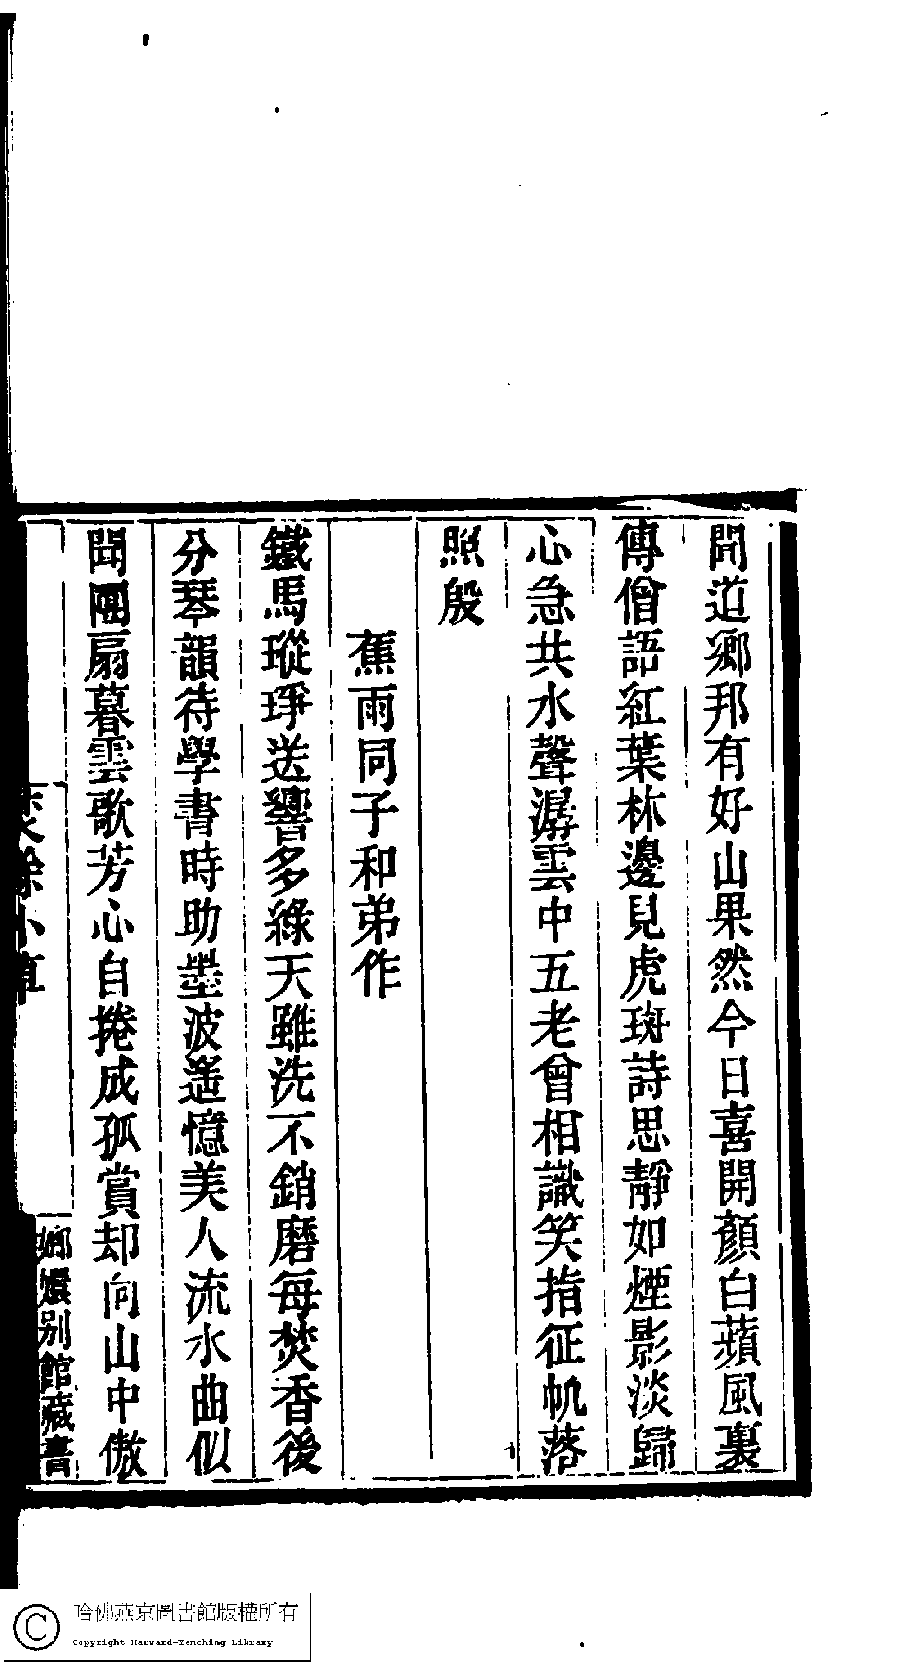 聞道鄉邦有好山果然今日喜開顏白蘋風裏
傳僧語紅葉林邊見虎斑詩思靜如煙影淡歸
心急共水聲潺雲中五老曾相識笑指征帆落
照殷
蕉雨同子和弟作
鐵馬瑽琤送響多綠天雖洗不銷磨每焚香後
分琴韻待學書時助墨波遥憶美人流水曲似
聞團扇暮雲歌芳心自捲成孤賞却向山中傲
餘小草
嫏嬛別館藏書
哈佛燕京圖書館版權所有
Copyright Harvard-Yenching Library